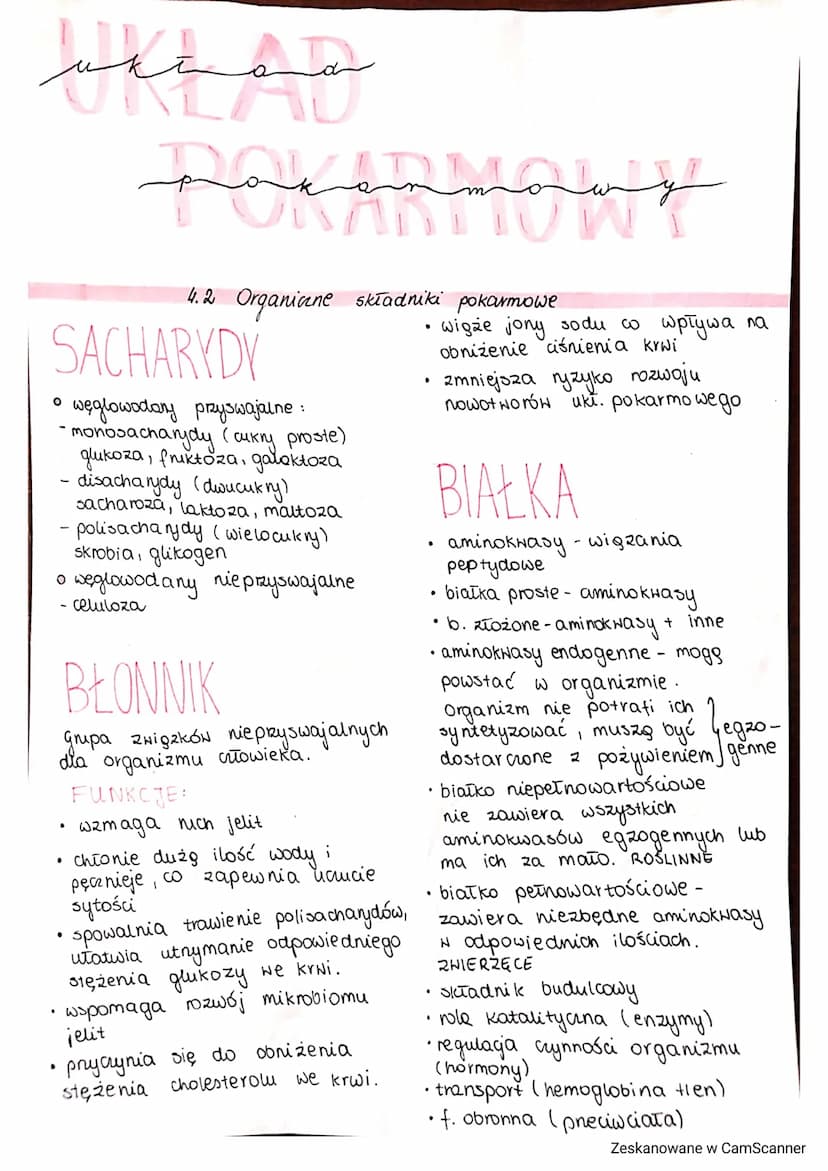 UKŁAD
układ
POKARMOWY
pokarmowy
4.2 Organiczne składniki pokarmowe
SACHARYDY
węglowodany przyswajalne:
- monosacharydy (cukry proste)
glukoza, fruktoza, galaktoza
- disacharydy (dwucukry)
sacharoza, laktoza, maltoza
- polisacharydy (wielocukry)
skrobia, glikogen
węglowodany nieprzyswajalne
- celuloza
BŁONNIK
Grupa związków nieprzyswajalnych
dla organizmu człowieka.
FUNKCJE:
• wzmaga ruch jelit
• chłonie dużą ilość wody i
pęcznieje, co zapewnia uczucie
sytości
• spowalnia trawienie polisacharydów,
ułatwia utrzymanie odpowiedniego
stężenia glukozy we krwi.
• wspomaga rozwój mikrobiomu
jelit
• przyczynia się do obniżenia
stężenia cholesterolu we krwi.
• wiąże jony sodu co wpływa na
obniżenie ciśnienia krwi
• zmniejsza ryzyko rozwoju
nowotworów ukł. pokarmowego
BIAŁKA
• aminokwasy - wiązania
peptydowe
• białka proste - aminokwasy
• b. złożone - aminokwasy + inne
• aminokwasy endogenne - mogą
powstać w organizmie.
Organizm nie potrafi ich
syntetyzować, muszą być
dostarczone z pożywieniem
egzo-
genne
• białko niepełnowartościowe
nie zawiera wszystkich
aminokwasów egzogennych lub
ma ich za mało. ROŚLINNE
• białko pełnowartościowe -
zawiera niezbędne aminokwasy
w odpowiednich ilościach.
ZWIERZĘCE
• składnik budulcowy
• rola katalityczna (enzymy)
• regulacja czynności organizmu
(hormony)
• transport (hemoglobina tlen)
• f. obronna (przeciwciała)
Zeskanowane w CamScanner